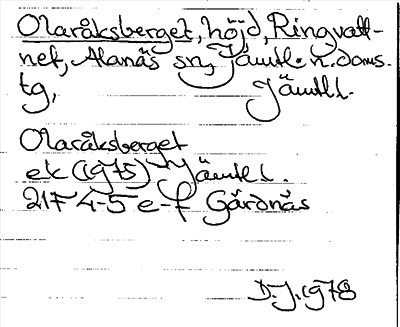 Olaråksberget, höjd, Ringvatt-
net, Alanäs sn, Jämtl. n. doms.
tg, Jämtl.l.
Olaråksberget
ek (1975) Jämtl.l.
21F 4-5 e-f Gärdnäs
D.J. 1978